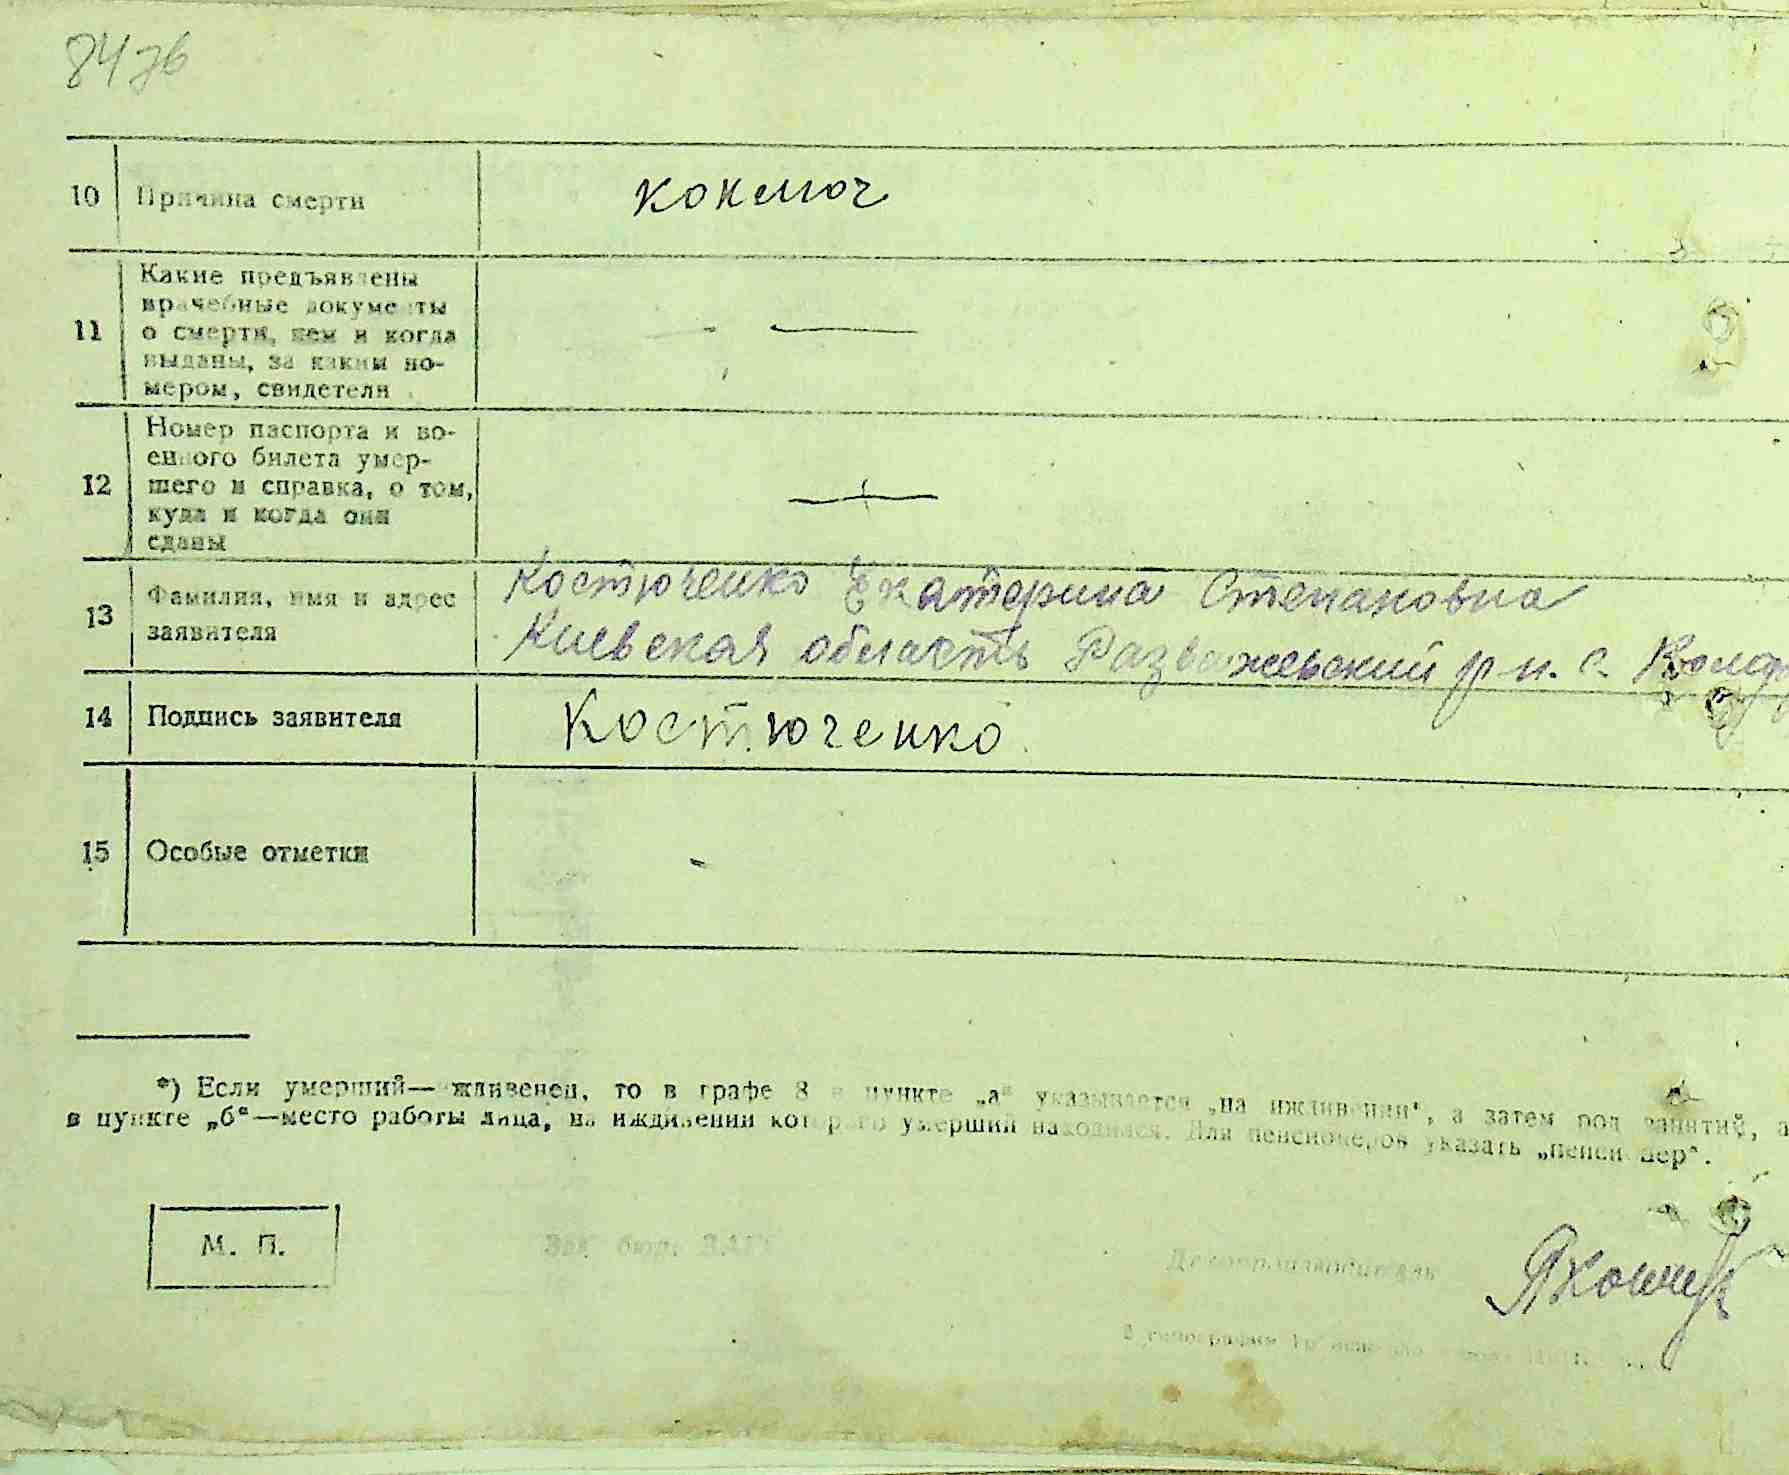 8476
10 Причина смерти коключ
11 Какие предъявлены
врачебные документы
о смерти, кем и когда
выданы, за каким но-
мером, свидетели
12 Номер паспорта и во-
енного билета умер-
шего и справка, о том,
куда и когда они
сданы
13 Фамилия, имя и адрес
заявителя
Костюченко Екатерина Степановна
Киевская область Разважевский р-н. с.
14 Подпись заявителя Костюченко
15 Особые отметки
*) Если умерший—иждивенец, то в графе 8 в пункте „а“ указывается „на иждивении“, а затем род занятий, а
в пункте „б“—место работы лица, на иждивении которого умерший находился. Для пенсионеров указать „пенсионер“.
М. П.
Зав. бюро ЗАГС
Делопроизводитель